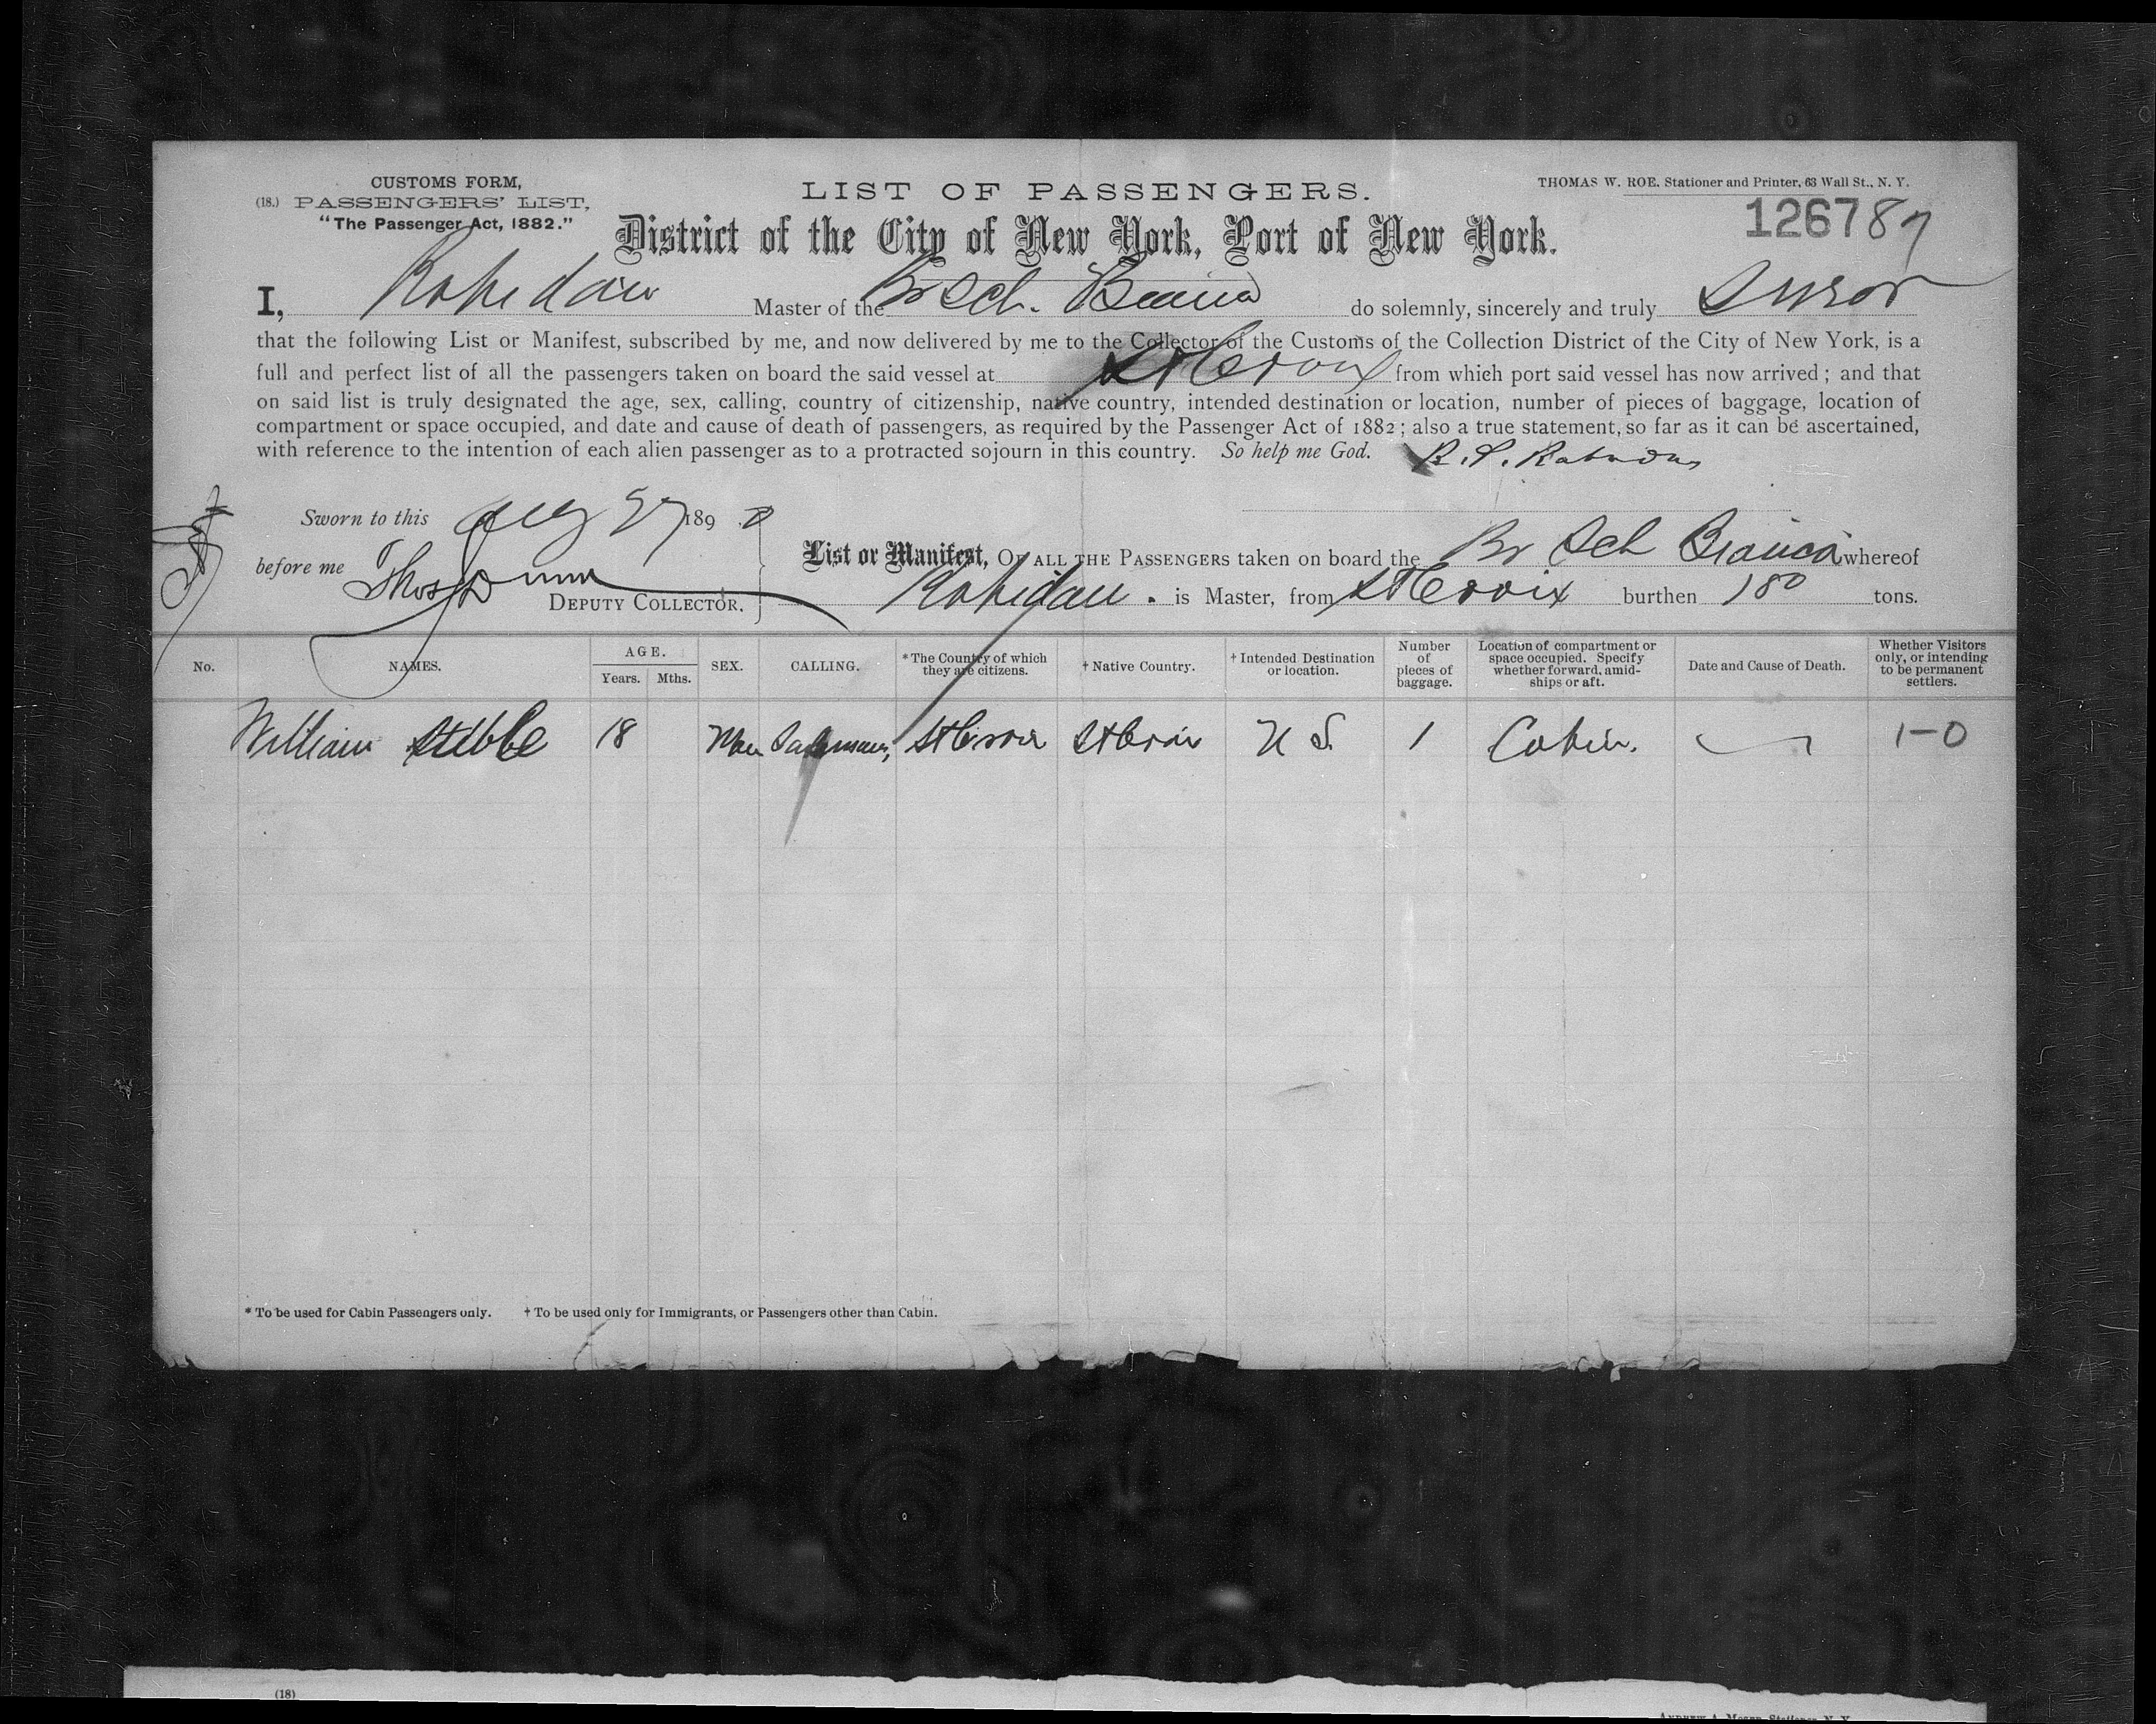 CUSTOMS FORM,
(18.) PASSENGERS' LIST,
"The Passenger Act, 1882."
LIST OF PASSENGERS.
THOMAS W. ROE. Stationer and Printer, 63 Wall St., N. Y.
126787
District of the City of New York, Port of New York.
I, Master of the Br Sch. do solemnly, sincerely and truly swear
that the following List or Manifest, subscribed by me, and now delivered by me to the Collector of the Customs of the Collection District of the City of New York, is a
full and perfect list of all the passengers taken on board the said vessel at St Croix from which port said vessel has now arrived; and that
on said list is truly designated the age, sex, calling, country of citizenship, native country, intended destination or location, number of pieces of baggage, location of
compartment or space occupied, and date and cause of death of passengers, as required by the Passenger Act of 1882; also a true statement, so far as it can be ascertained,
with reference to the intention of each alien passenger as to a protracted sojourn in this country. So help me God.
Sworn to this 27 189
before me Thos Dunn
DEPUTY COLLECTOR.
List or Manifest, OF ALL THE PASSENGERS taken on board the Br Sch Bianca whereof
is Master, from St Croix burthen 180 tons.
No. NAMES. AGE. Years. Mths. SEX. CALLING. *The Country of which they are citizens. †Native Country. †Intended Destination or location. Number of pieces of baggage. Location of compartment or space occupied. Specify whether forward, amidships or aft. Date and Cause of Death. Whether Visitors only, or intending to be permanent settlers.
William 18 Salesman, St Croix St Croix U S. 1 Cabin. 1-0
* To be used for Cabin Passengers only. † To be used only for Immigrants, or Passengers other than Cabin.
(18)